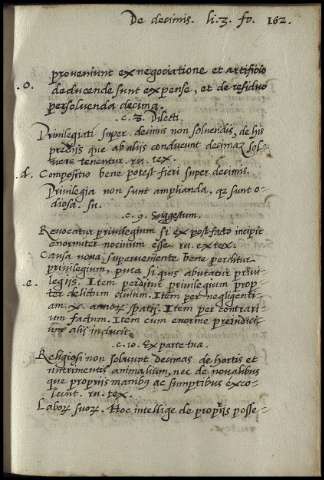 De decimis. li. 3. fo. 162.
proveniunt ex negociatione et artificio
.o. deducende sunt expense, et de residuo
persolvenda decima.
c. 8. Dilecti
Privilegiati super decimis non solvendis, de his
prediis que ab aliis conducunt decimas sol-
vere tenentur. ru. tex.
.d. Compositio bene potest fieri super decimis.
Privilegia non sunt amplianda, quia sunt o-
diosa. su.
c. 9. Suggestum.
Revocatur privilegium si ex post facto incipit
enormiter nocivum esse. ru. ex tex.
Causa nova superveniente bene perditur
privilegium, puta si quis abutatur privi-
.e. legiis. Item perditur privilegium prop-
ter delictum ouium. Item per negligenti-
am .x. annorum spatii. Item per contrari-
um factum. Item cum enorme preiudici-
um aliis inducit.
c. 10. Ex parte tua.
Religiosi non solvunt decimas de hortis et
nutrimentis animalium, nec de novalibus
que propriis manibus ac sumptibus exco-
lunt. ru. tex.
Laborum suorum. Hoc intellige de propriis posse-